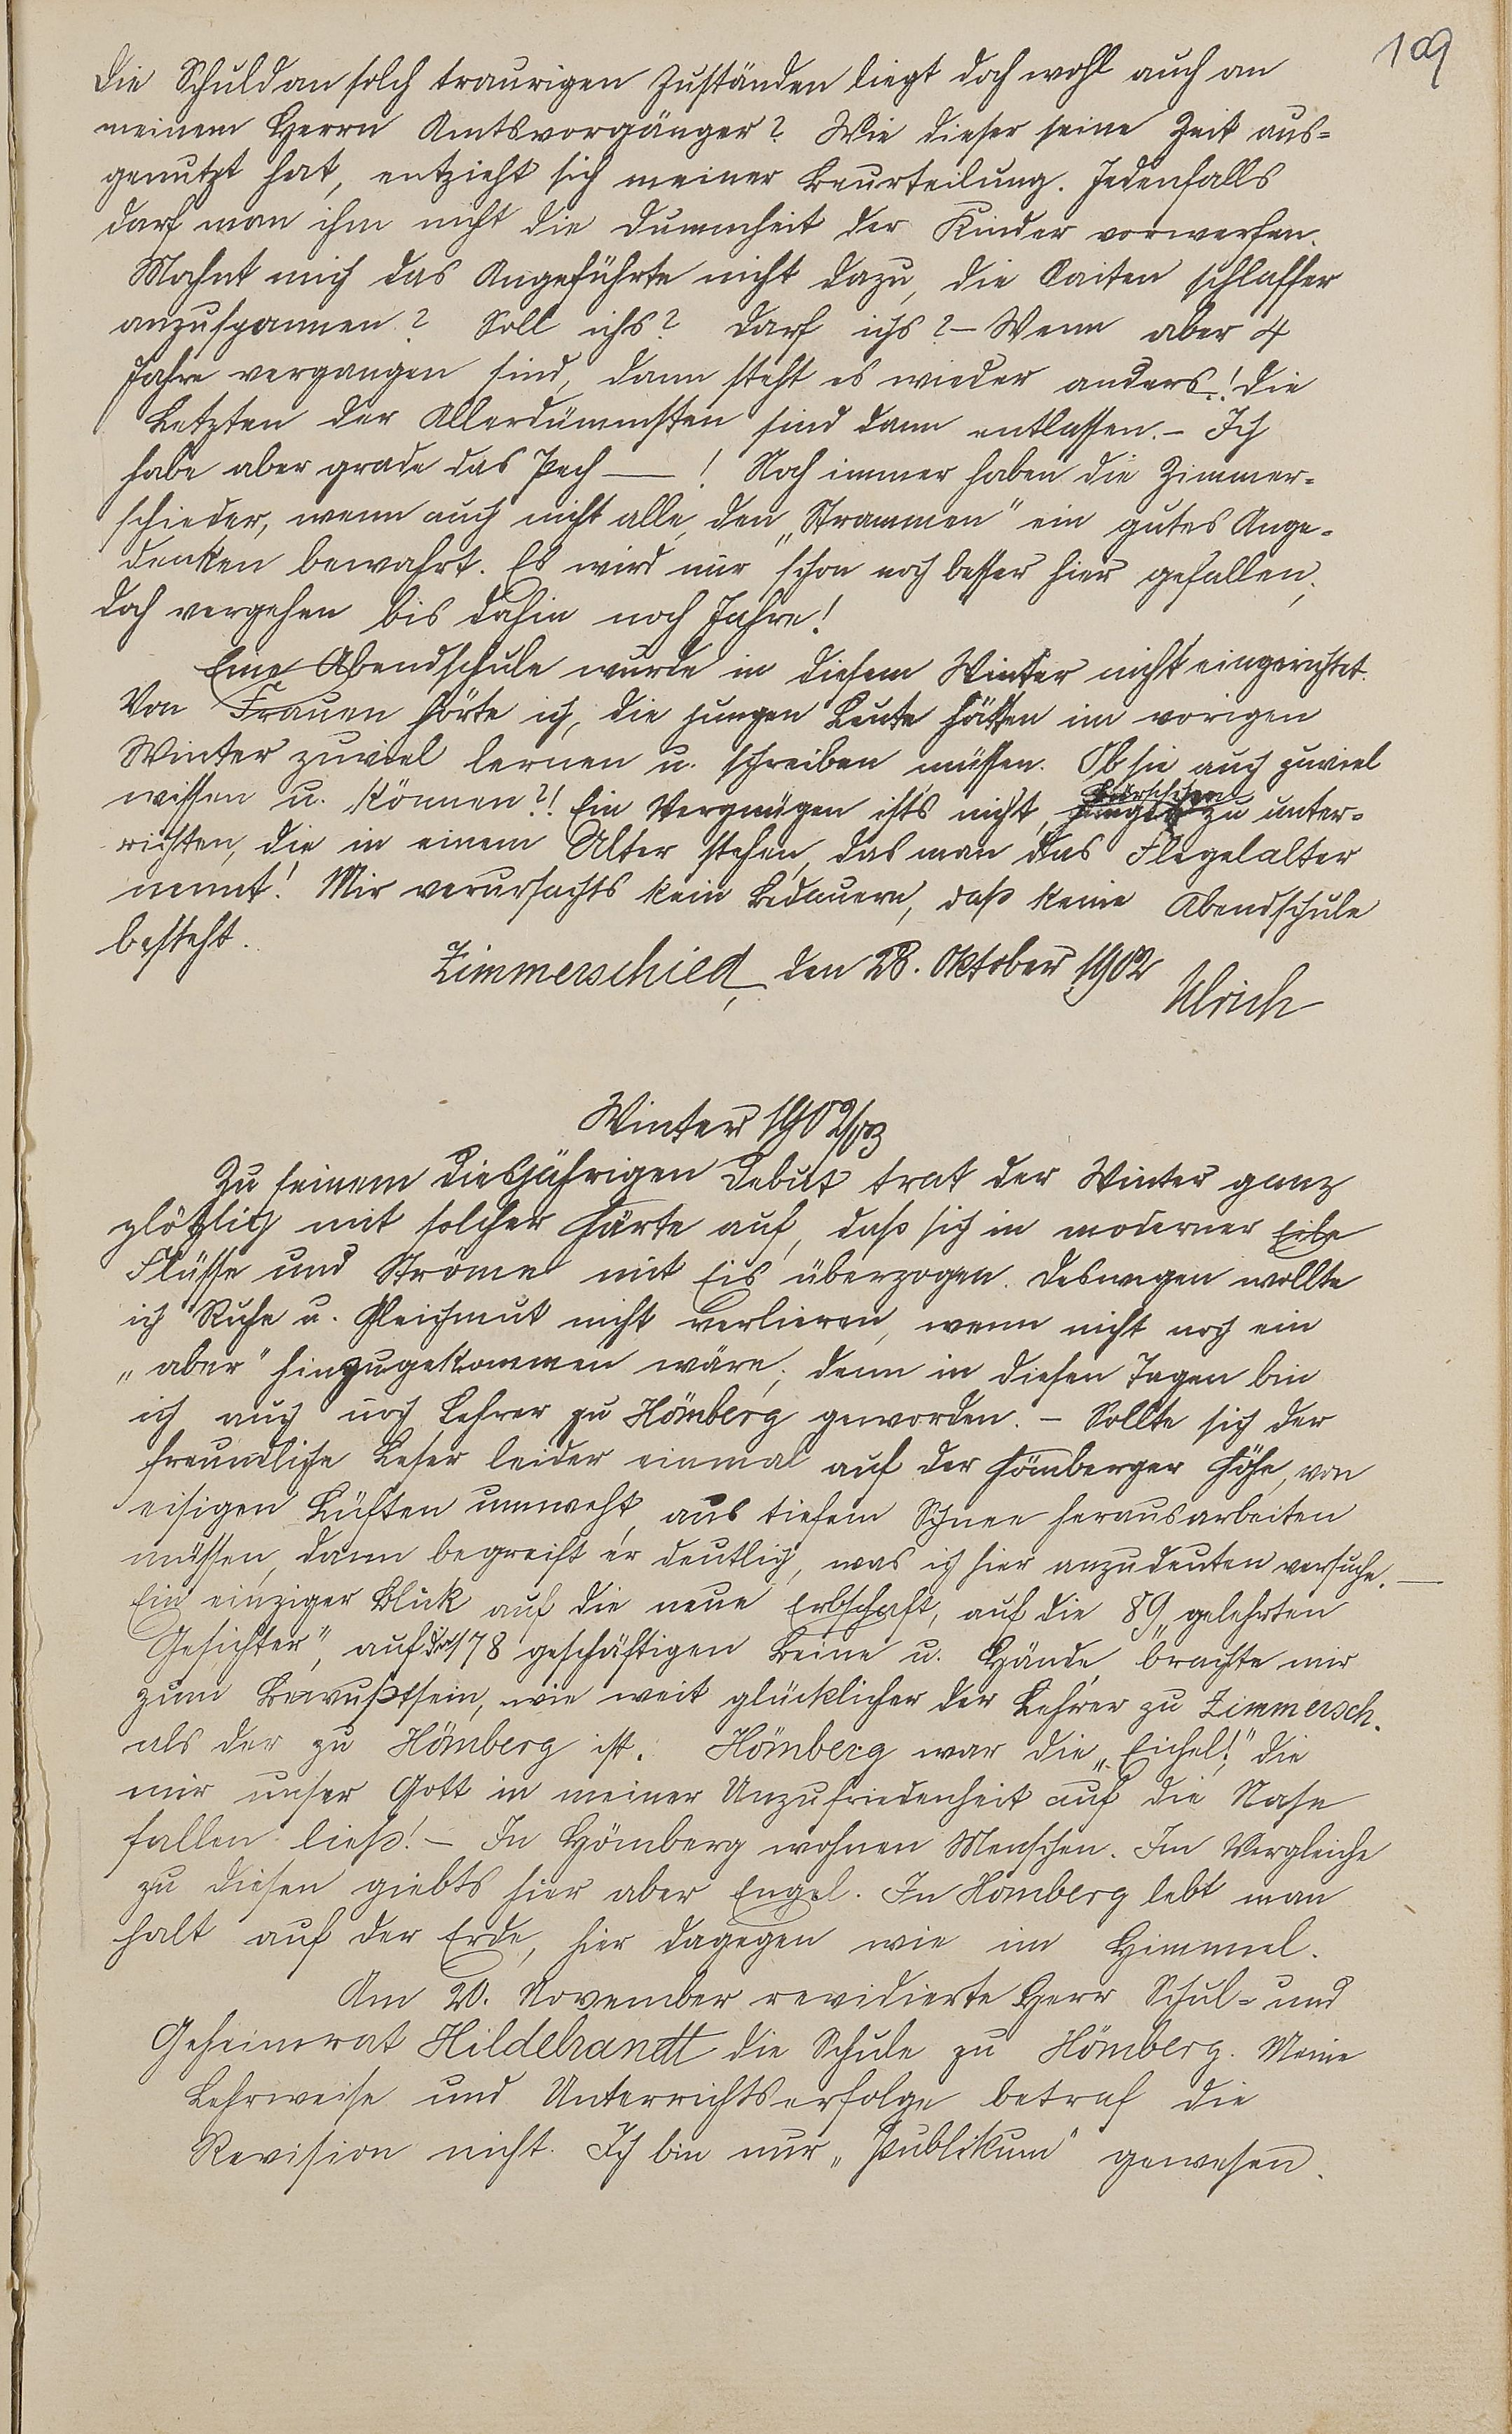 109
Die Schuld an solch traurigen Zuständen liegt doch wohl auch an
meinem Herrn Amtsvorgänger? Wie dieser seine Zeit aus-
genutzt hat, entzieht sich meiner Beurteilung. Jedenfalls
darf man ihm nicht die Dummheit der Kinder vorwerfen.
Mahnt mich das Angeführte nicht dazu, die Saiten schlaffer
anzuspannen? Soll ichs? Darf ichs? – Wenn aber 4
Jahre vergangen sind, dann steht es wieder anders! Die
Letzten der Allerdümmsten sind dann entlassen. – Ich
habe aber grade das Pech –! Noch immer haben die Zimmer-
schieder, wenn auch nicht alle, den „Strammen" ein gutes Ange-
denken bewahrt. Es wird mir schon noch besser hier gefallen;
doch vergehen bis dahin noch Jahre!
Eine Abendschule wurde in diesem Winter nicht eingerichtet.
Von Frauen hörte ich, die jungen Leute hätten im vorigen
Winter zuviel lernen u. schreiben müssen. Ob sie auch zuviel
wissen u. können?! Ein Vergnügen ists nicht, Burschen zu unter-
richten, die in einem Alter stehen, das man das Flegelalter
nennt! Mir verursachts kein Bedauern, daß keine Abendschule
besteht.
Zimmerschied, den 28. Oktober 1902
Ulrich
Winter 1902/03
Zu seinem diesjährigen Debut trat der Winter ganz
plötzlich mit solcher Härte auf, daß sich in moderner Eile
Flüsse und Ströme mit Eis überzogen. Deswegen wollte
ich Ruhe u. Gleichmut nicht verlieren, wenn nicht noch ein
„aber" hinzugekommen wäre; denn in diesen Tagen bin
ich auch noch Lehrer zu Hömberg geworden. – Sollte sich der
freundliche Leser leider einmal auf der Hömberger Höhe, von
eisigen Lüften umweht, aus tiefem Schnee herausarbeiten
müssen, dann begreift er deutlich, was ich hier anzudeuten versuche. –
Ein einziger Blick auf die neue Erbschaft, auf die 89 „gelehrten
Gesichter", auf die 178 geschäftigen Beine u. Hände, brachte mir
zum Bewußtsein, wie weit glücklicher der Lehrer zu Zimmersch.
als der zu Hömberg ist. Hömberg war die „Eichel!" die
mir unser Gott in meiner Unzufriedenheit auf die Nase
fallen ließ! – In Hömberg wohnen Menschen. Im Vergleiche
zu diesen giebts hier aber Engel. In Hömberg lebt man
halt auf der Erde, hier dagegen wie im Himmel.
Am 20. November revidierte Herr Schul- und
Geheimrat Hildebrandt die Schule zu Hömberg. Meine
Lehrweise und Unterrichtserfolge betraf die
Revision nicht. Ich bin nur „Publikum" gewesen.